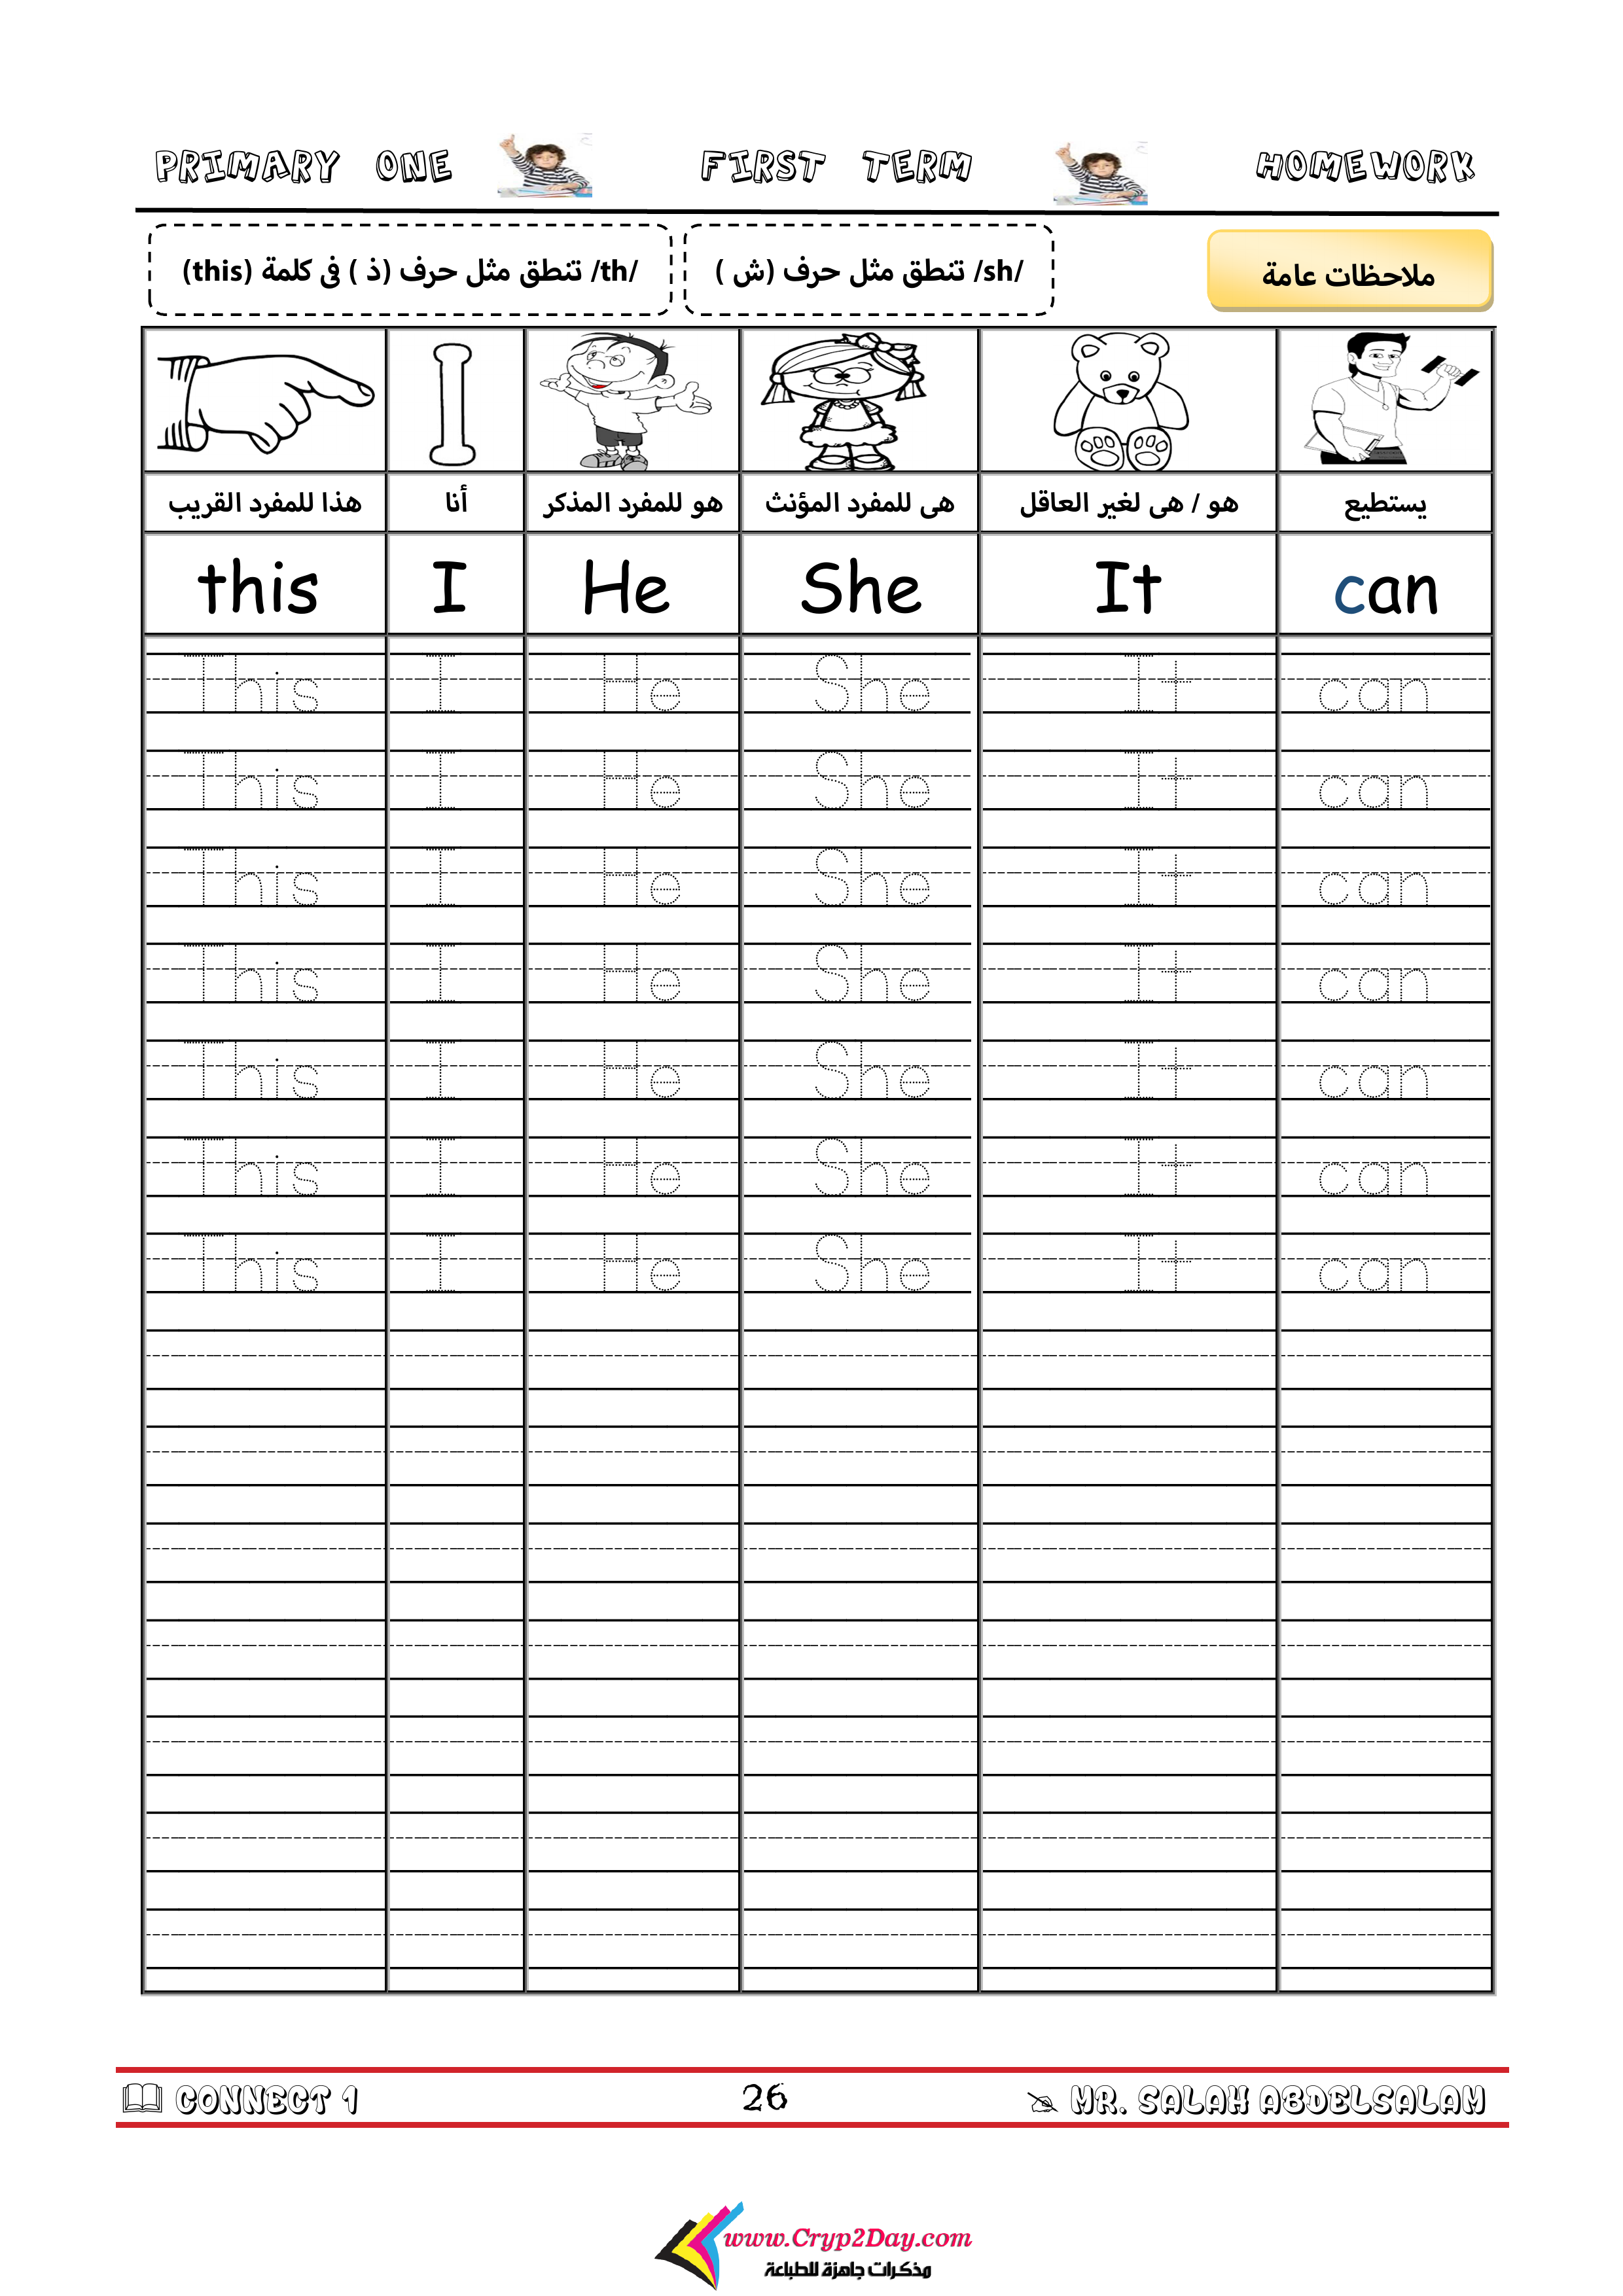 PRIMARY ONE FIRST TERM HOMEWORK
ملاحظات عامة
/sh/ تنطق مثل حرف (ش )
/th/ تنطق مثل حرف (ذ ) فى كلمة (this)
هذا للمفرد القريب أنا هو للمفرد المذكر هى للمفرد المؤنث هو / هى لغير العاقل يستطيع
this I He She It can
This I He She It can
This I He She It can
This I He She It can
This I He She It can
This I He She It can
This I He She It can
This I He She It can
CONNECT 1 26 MR. SALAH ABDELSALAM
www.Cryp2Day.com
مذكرات جاهزة للطباعة